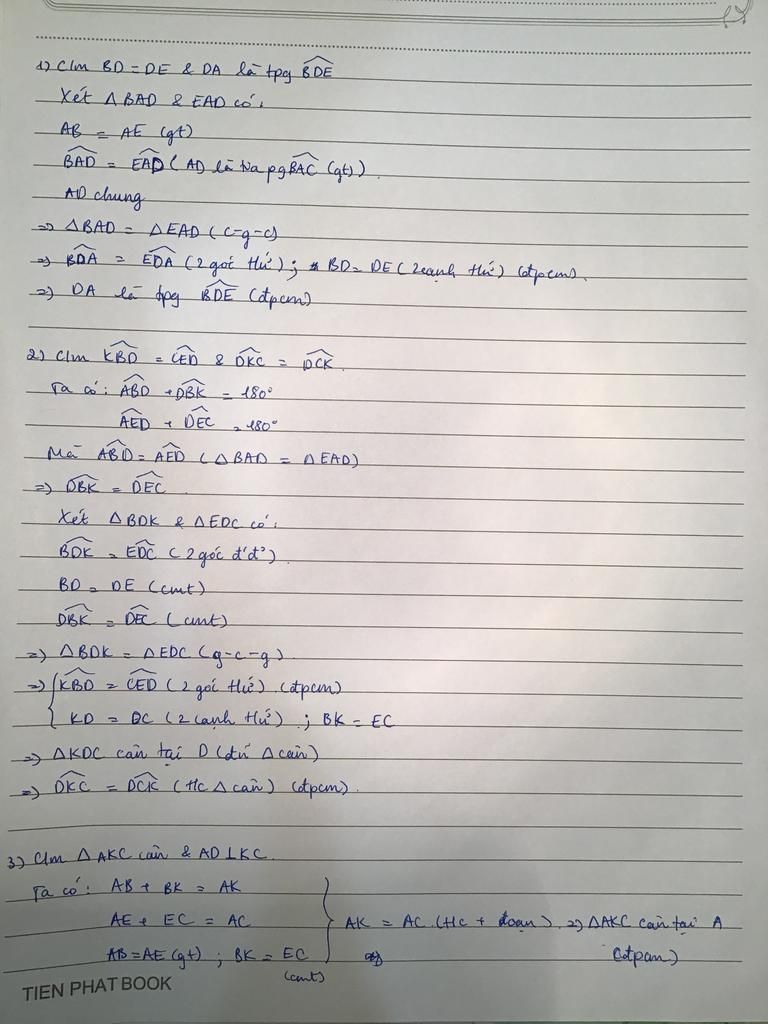 1) Clm BD = DE & DA là tpg BDE
Xét Δ BAD & EAD có:
AB = AE (gt)
BAD = EAD (AD là tia pg BAC (gt)).
AD chung
=> ΔBAD = ΔEAD (c-g-c)
=> BDA = EDA (2 góc tứ); BD = DE (2 cạnh tứ) (đpcm).
=> DA là tpg BDE (đpcm)
2) Clm KBD = CED & DKC = DCK.
Ta có: ABD + DBK = 180°
AED + DEC = 180°
Mà ABD = AED (ΔBAD = ΔEAD)
=> DBK = DEC
Xét ΔBDK & ΔEDC có:
BDK = EDC (2 góc đ'đ²).
BD = DE (cmt)
DBK = DEC (cmt)
=> ΔBDK = ΔEDC (g-c-g).
=> KBD = CED (2 góc tứ). (đpcm)
KD = DC (2 cạnh tứ). ; BK = EC
=> ΔKDC cân tại D (đ/n Δ cân)
=> DKC = DCK (t/c Δ cân) (đpcm).
3) Clm Δ AKC cân & AD ⊥ KC.
Ta có: AB + BK = AK
AE + EC = AC
AB = AE (gt) ; BK = EC
(cmt)
AK = AC. (t/c + đoạn). => ΔAKC cân tại A
(đpcm)
TIEN PHAT BOOK